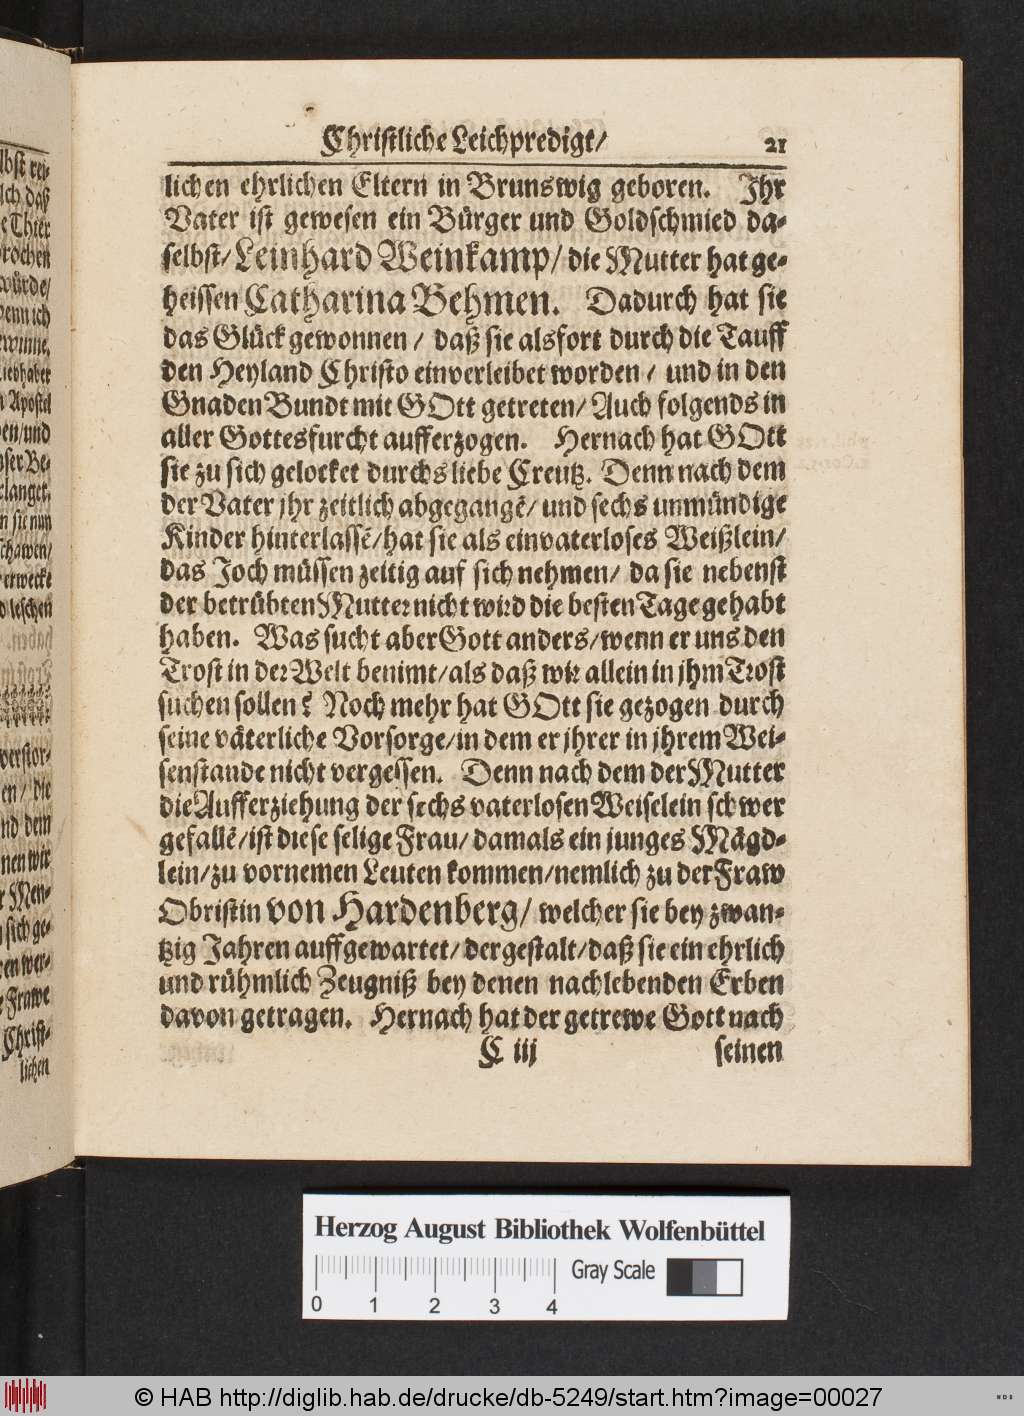 Christliche Leichpredigt/ 21
lichen ehrlichen Eltern in Brunswig geboren. Ihr
Vater ist gewesen ein Bürger und Goldschmied da-
selbst/ Leinhard Weinkamp/ die Mutter hat ge-
heissen Catharina Behmen. Dadurch hat sie
das Glück gewonnen / daß sie alsfort durch die Tauff
den Heyland Christo einverleibet worden / und in den
Gnaden Bundt mit GOtt getreten/ Auch folgends in
aller Gottesfurcht aufferzogen. Hernach hat GOtt
sie zu sich gelocket durchs liebe Creutz. Denn nach dem
der Vater jhr zeitlich abgegangē/ und sechs unmündige
Kinder hinterlassē/ hat sie als ein vaterloses Weißlein/
das Joch müssen zeitig auf sich nehmen/ da sie nebenst
der betrübten Mutter nicht wird die besten Tage gehabt
haben. Was sucht aber Gott anders/ wenn er uns den
Trost in der Welt benimt/ als daß wir allein in jhm Trost
suchen sollen? Noch mehr hat GOtt sie gezogen durch
seine väterliche Vorsorge/ in dem er jhrer in jhrem Wei-
senstande nicht vergessen. Denn nach dem der Mutter
die Aufferziehung der sechs vaterlosen Weiselein schwer
gefallē/ ist diese selige Frau/ damals ein junges Mägd-
lein/ zu vornemen Leuten kommen/ nemlich zu der Fraw
Obristin von Hardenberg/ welcher sie bey zwan-
tzig Jahren auffgewartet/ dergestalt/ daß sie ein ehrlich
und rühmlich Zeugniß bey denen nachlebenden Erben
davon getragen. Hernach hat der getrewe Gott nach
C iij seinen
lbst rei-
lch daß
e Thier
rochen
würde/
enn ich
winne.
Liebhaber
n Apostel
en/ und
ser Be-
langet.
n sie nun
chawen/
erweckt
d leschen
verstor-
en/ die
nd dem
nen wir
r Men-
sich ge-
en wer-
Frawe
Christ-
lichen
Herzog August Bibliothek Wolfenbüttel
Gray Scale
0 1 2 3 4
© HAB http://diglib.hab.de/drucke/db-5249/start.htm?image=00027